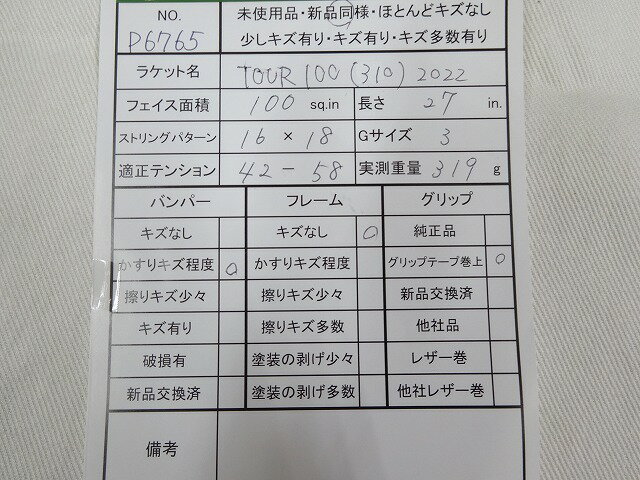 NO.
P6765
未使用品・新品同様・ほとんどキズなし
少しキズ有り・キズ有り・キズ多数有り
ラケット名 TOUR 100 (310) 2022
フェイス面積 100 sq.in 長さ 27 in.
ストリングパターン 16 × 18 Gサイズ 3
適正テンション 42 - 58 実測重量 319 g
バンパー フレーム グリップ
キズなし キズなし ○ 純正品
かすりキズ程度 ○ かすりキズ程度 グリップテープ巻上 ○
擦りキズ少々 擦りキズ少々 新品交換済
キズ有り 擦りキズ多数 他社品
破損有 塗装の剥げ少々 レザー巻
新品交換済 塗装の剥げ多数 他社レザー巻
備考